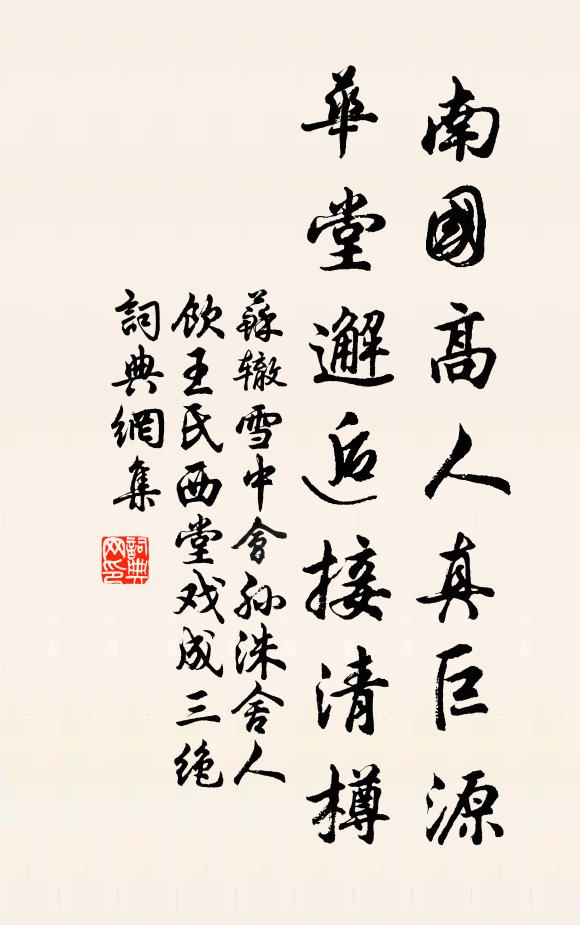 南國高人真巨源
華堂邂逅接清樽
蘇辙雪中會孫洙舍人
飲王氏西堂戏成三绝
詞典網集
詞典
网印